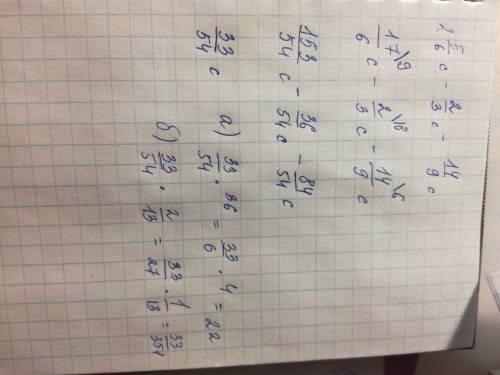 2 5/6 c - 2/3 c - 14/9 c
17/6 \9 c - 2/3 \18 c - 14/9 \6 c
153/54 c - 36/54 c - 84/54 c
33/54 c
а) 33/54 · 36 = 33/6 · 4 = 22
б) 33/54 · 2/13 = 33/27 · 1/13 = 33/351